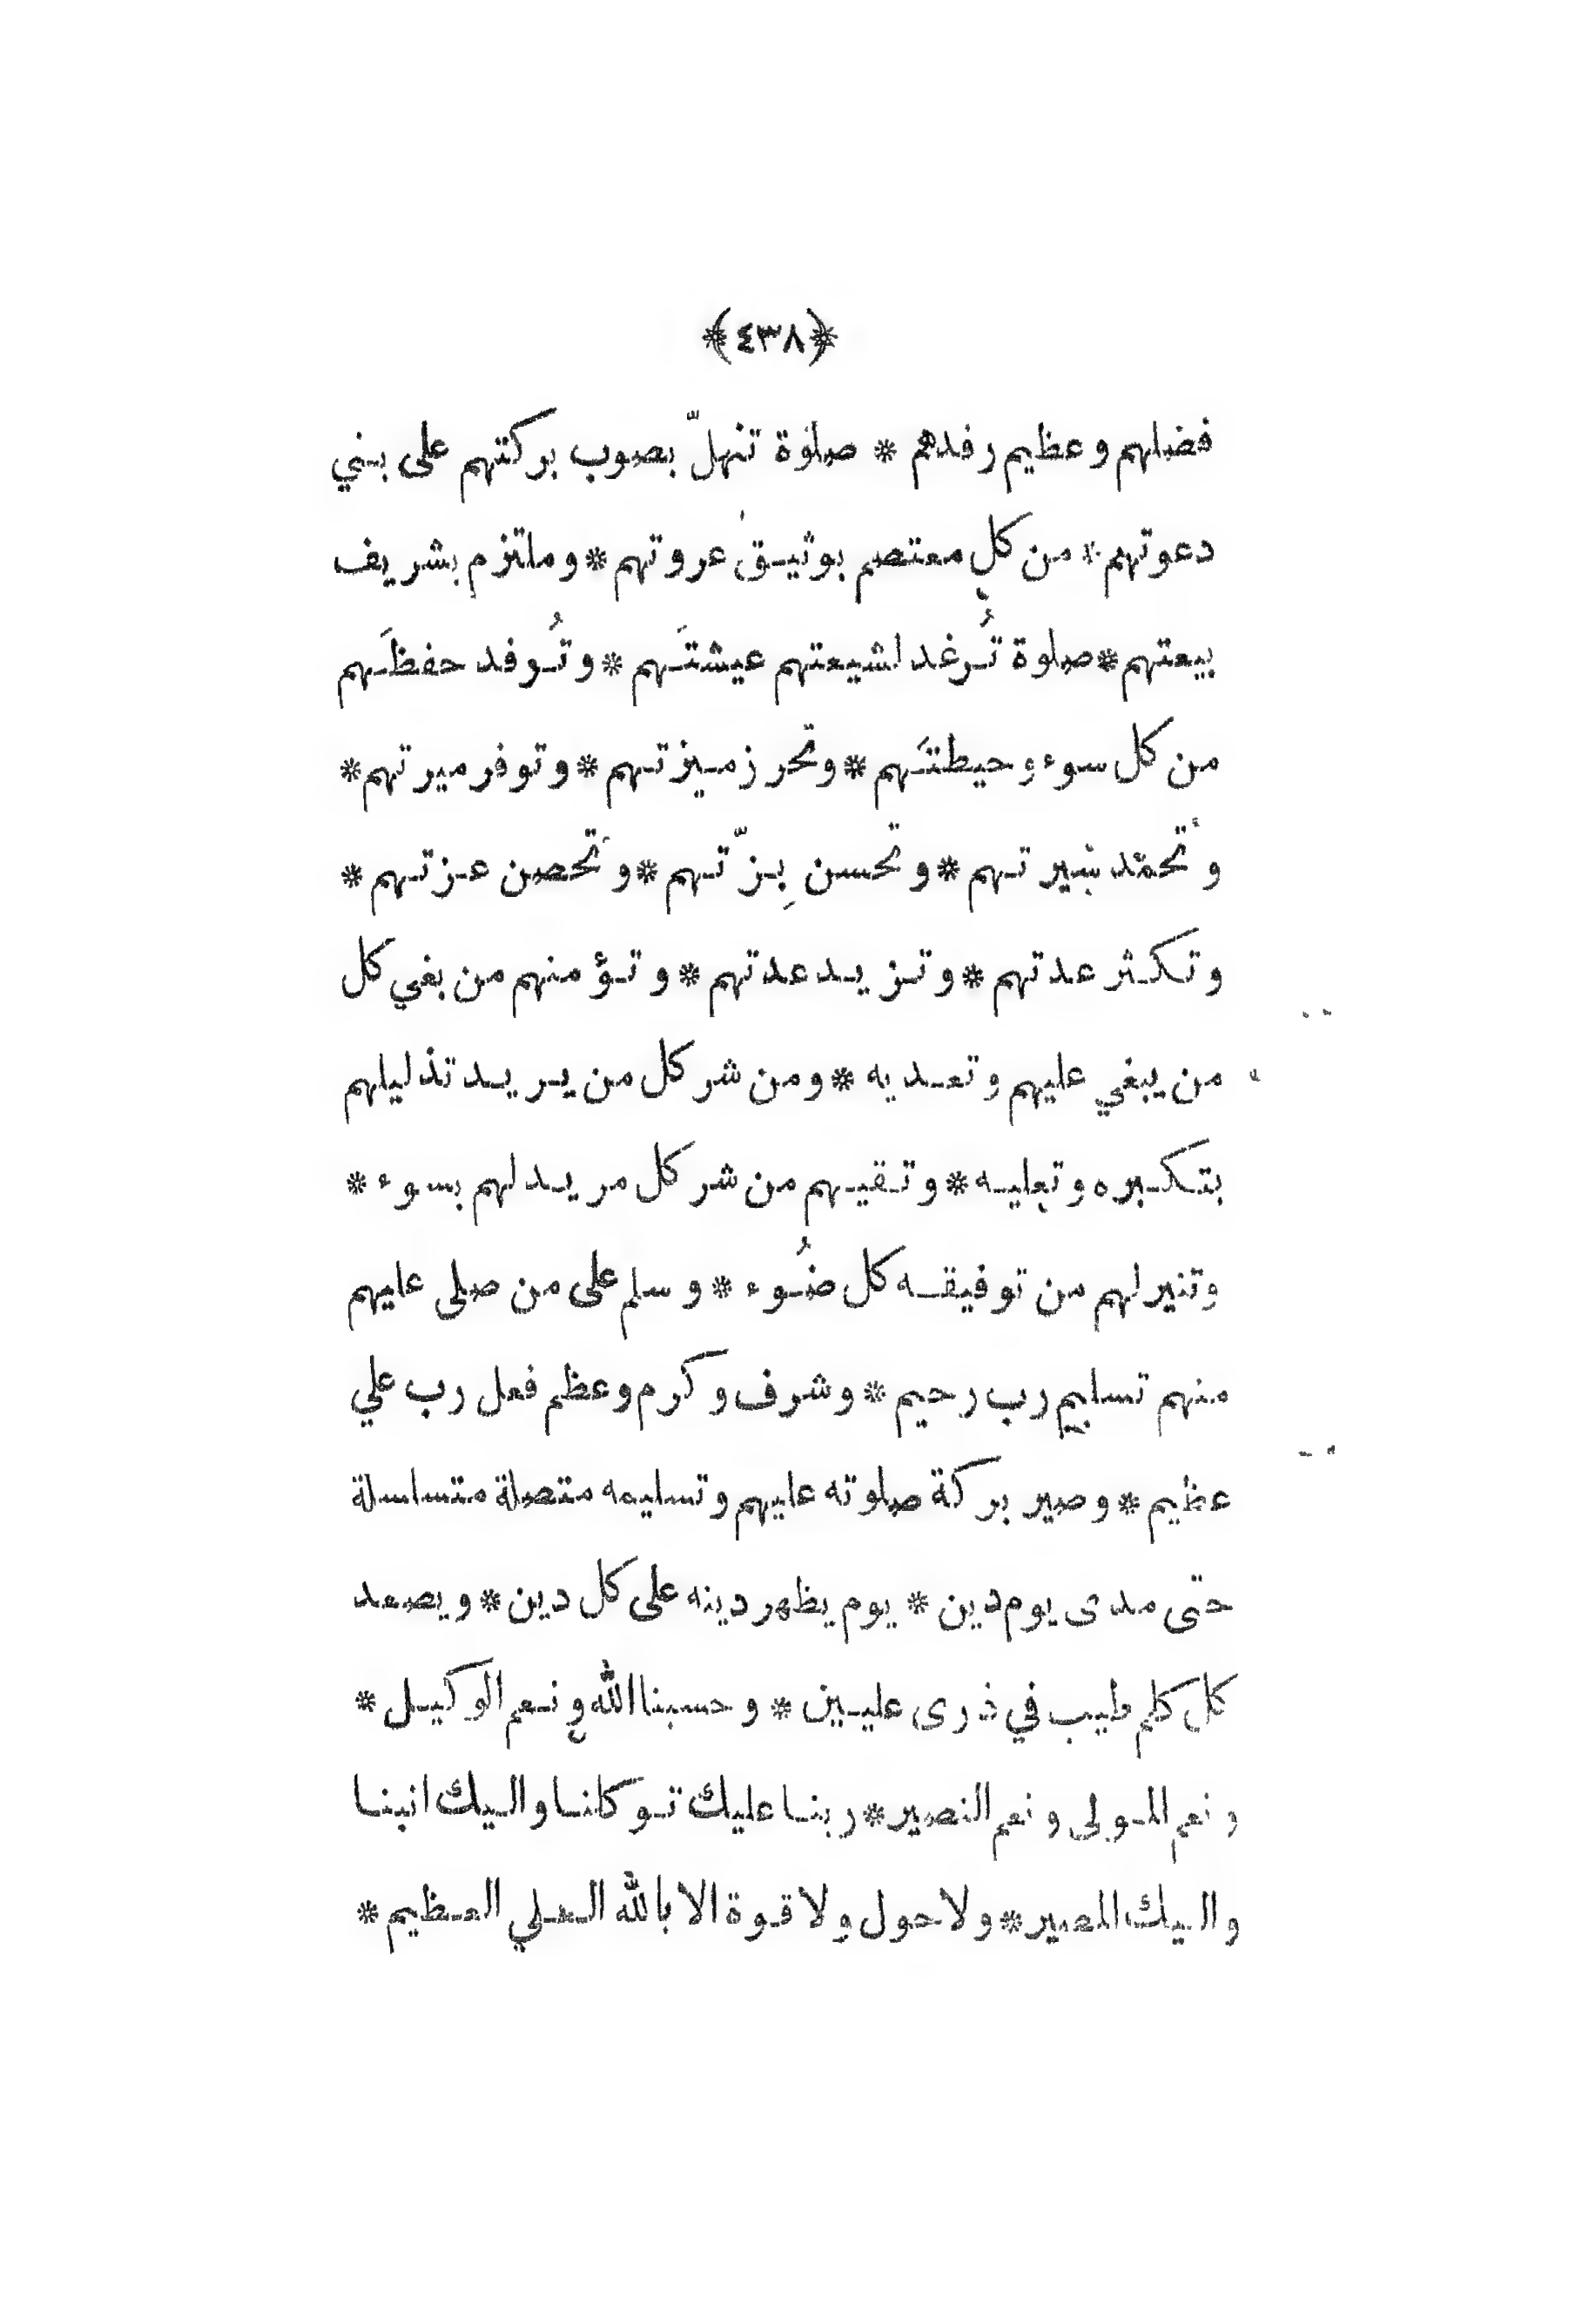 ﴿٤٣٨﴾
فضلهم وعظيم رفدهم * صلوة تنهلّ بصوب بركتهم على بني
دعوتهم * من كل معتصم بوثيق عروتهم * وملتزم بشريف
بيعتهم * صلوة تُرغد لشيعتهم عيشتَهم * وتُوفد حفظَهم
من كل سوء وحيطتَهم * وتحرز ميزتهم * وتوفر ميرتهم *
وتحمد سيرتهم * وتحسن بِزّتهم * وتحصن عزتهم *
وتكثر عدتهم * وتزيد عدتهم * وتؤمنهم من بغي كل
من يبغي عليهم وتعديه * ومن شر كل من يريد تذليلهم
بتكبره وتعليه * وتقيهم من شر كل مريد لهم بسوء *
وتنير لهم من توفيقه كل ضُوء * وسلم على من صلى عليهم
منهم تسليم رب رحيم * وشرف وكرم وعظم فعل رب علي
عظيم * وصير بركة صلوته عليهم وتسليمه متصلة متسلسلة
حتى مدى يوم دين * يوم يظهر دينه على كل دين * ويصعد
كل كلم طيب في ذرى عليين * وحسبنا الله ونعم الوكيل *
ونعم المولى ونعم النصير * ربنا عليك توكلنا واليك انبنا
واليك المصير * ولا حول ولا قوة الا بالله العلي العظيم *